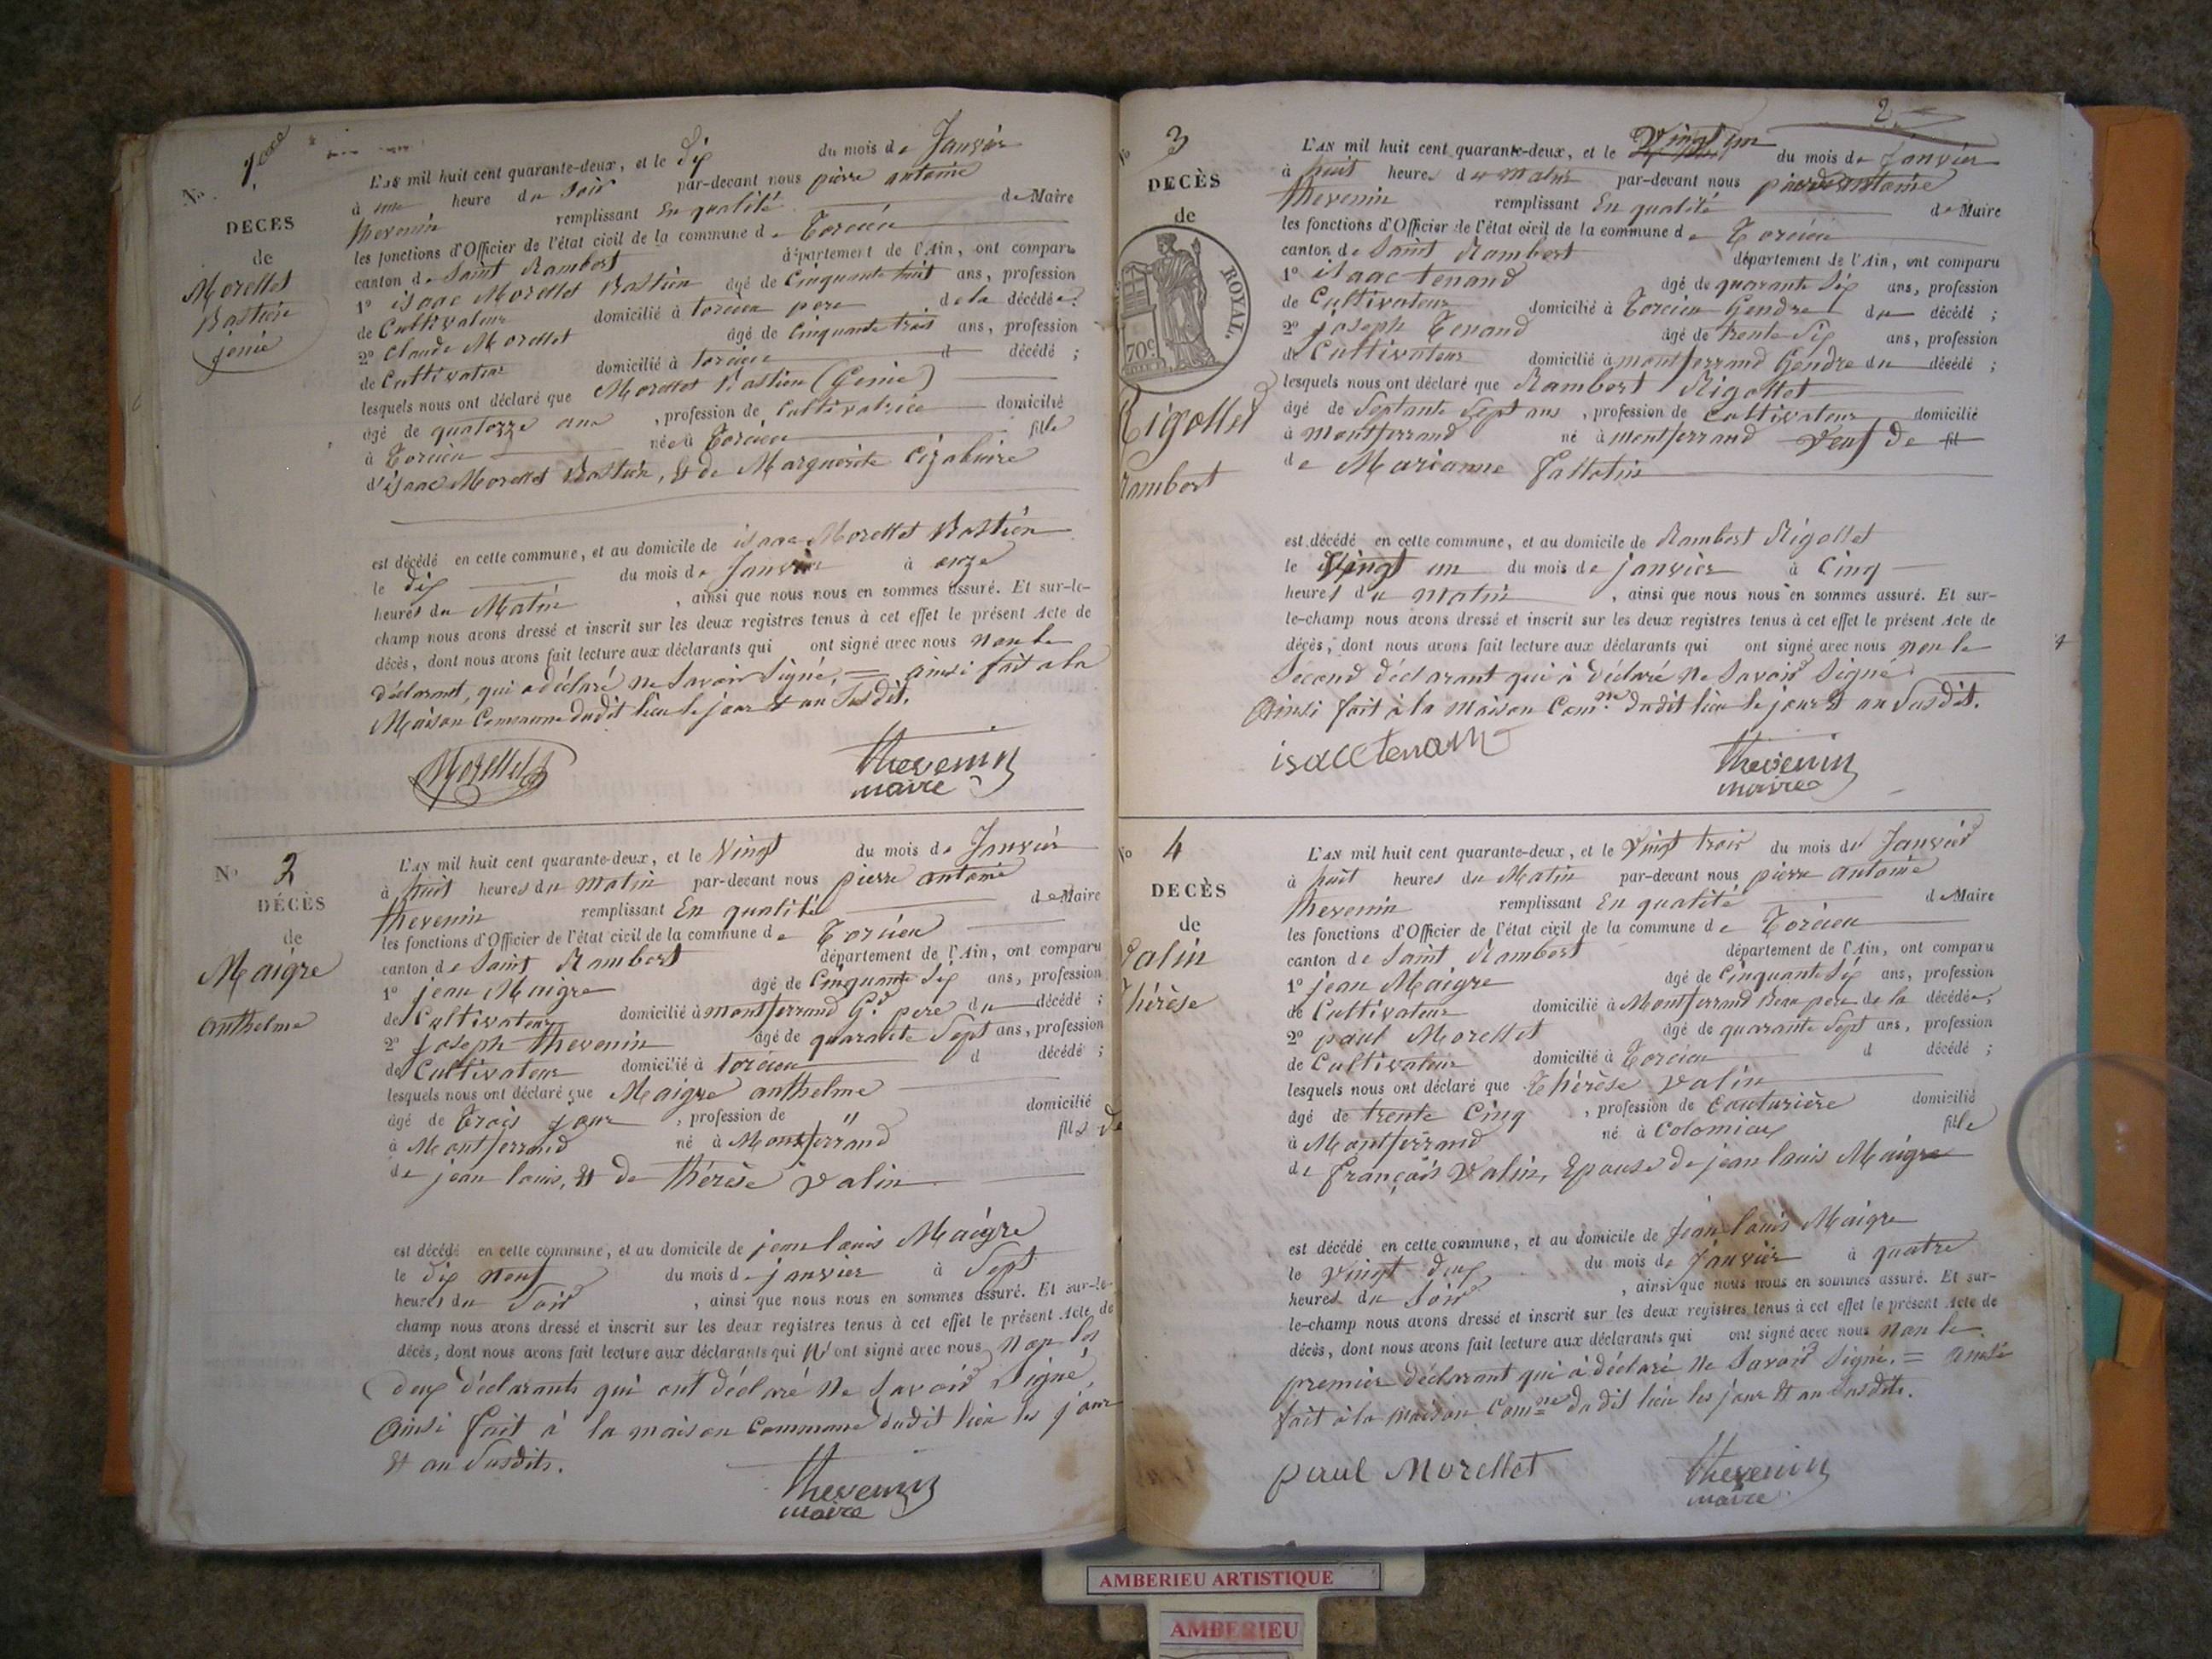 No 1er
DECES
de
Morellet
Bastien
jenie
L'an mil huit cent quarante-deux, et le dix du mois de Janvier
à une heure du soir par-devant nous pierre antoine
thevenin remplissant En qualité de Maire
les fonctions d'Officier de l'état civil de la commune de Torcieu
canton de Saint Rambert département de l'Ain, ont comparu
1º isaac Morellet Bastien âgé de Cinquante huit ans, profession
de Cultivateur domicilié à torcieu pere de la décédée;
2º Claude Morellet âgé de Cinquante trois ans, profession
de Cultivateur domicilié à torcieu d décédé ;
lesquels nous ont déclaré que Morellet Bastien (Genie)
âgé de quatorze ans , profession de Cultivatrice domicilié
à Torcieu née à Torcieu fille
d'isaac Morellet Bastien, & de Marguerite
est décédé en cette commune, et au domicile de isaac Morellet Bastien
le dix du mois de Janvier à onze
heures du Matin , ainsi que nous nous en sommes assuré. Et sur-le-
champ nous avons dressé et inscrit sur les deux registres tenus à cet effet le présent Acte de
décès, dont nous avons fait lecture aux déclarants qui ont signé avec nous non le
déclarant, qui a déclaré ne Savoir Signé, = ainsi fait a la
Maison Commune dudit lieu le jour & an Susdit.
Morellet
thevenin
maire
No 2
DÉCÈS
de
Maigre
anthelme
L'an mil huit cent quarante-deux, et le Vingt du mois de Janvier
à huit heures du matin par-devant nous pierre antoine
thevenin remplissant En qualité de Maire
les fonctions d'Officier de l'état civil de la commune de Torcieu
canton de Saint Rambert département de l'Ain, ont comparu
1º jean Maigre âgé de Cinquante Six ans, profession
de Cultivateur domicilié à montferrand Gd pere du décédé ;
2º joseph thevenin âgé de quarante Sept ans, profession
de Cultivateur domicilié à torcieu d décédé ;
lesquels nous ont déclaré que Maigre anthelme
âgé de Trois jour , profession de " domicilié
à Montferrand né à Montferrand fils de
de jean louis, & de thérèse valin
est décédé en cette commune, et au domicile de jean louis Maigre
le dix neuf du mois de janvier à Sept
heures du Soir , ainsi que nous nous en sommes assuré. Et sur-le-
champ nous avons dressé et inscrit sur les deux registres tenus à cet effet le présent Acte de
décès, dont nous avons fait lecture aux déclarants qui N'ont signé avec nous non les
deux déclarants qui ont déclaré ne Savoir Signé,
Ainsi fait à la maison Commune dudit lieu les jour
& an Susdits.
thevenin
maire
2
No 3
DECÈS
de
ROYAL.
70c
Rigollet
Rambert
L'an mil huit cent quarante-deux, et le Vingt un du mois de Janvier
à huit heures du matin par-devant nous pierre antoine
thevenin remplissant En qualité de Maire
les fonctions d'Officier de l'état civil de la commune de Torcieu
canton de Saint Rambert département de l'Ain, ont comparu
1º isaac tenand âgé de quarante Six ans, profession
de Cultivateur domicilié à Torcieu Gendre du décédé ;
2º joseph Tenand âgé de trente Six ans, profession
de Cultivateur domicilié à montferrand Gendre du décédé ;
lesquels nous ont déclaré que Rambert Rigollet
âgé de Septante Sept ans , profession de Cultivateur domicilié
à montferrand né à montferrand veuf de fil
de Marianne
est décédé en cette commune, et au domicile de Rambert Rigollet
le Vingt un du mois de janvier à Cinq
heures du matin , ainsi que nous nous en sommes assuré. Et sur-
le-champ nous avons dressé et inscrit sur les deux registres tenus à cet effet le présent Acte de
décès, dont nous avons fait lecture aux déclarants qui ont signé avec nous non le
Second déclarant qui à déclaré ne Savoir Signé
Ainsi fait à la maison Comne dudit lieu le jour & an Susdit.
isacc tenand
thevenin
maire
No 4
DECÈS
de
Valin
Thérèse
L'an mil huit cent quarante-deux, et le Vingt trois du mois de Janvier
à huit heures du Matin par-devant nous pierre antoine
thevenin remplissant En qualité de Maire
les fonctions d'Officier de l'état civil de la commune de Torcieu
canton de Saint Rambert département de l'Ain, ont comparu
1º jean Maigre âgé de Cinquante Six ans, profession
de Cultivateur domicilié à Montferrand Beau pere de la décédée;
2º paul Morellet âgé de quarante Sept ans, profession
de Cultivateur domicilié à Torcieu d décédé ;
lesquels nous ont déclaré que Thérèse valin
âgé de trente Cinq , profession de Couturière domicilié
à Montferrand né à Colomieux fille
de françois Valin, Epouse de jean louis Maigre
est décédé en cette commune, et au domicile de Jean louis Maigre
le Vingt deux du mois de Janvier à quatre
heures du Soir , ainsi que nous nous en sommes assuré. Et sur-
le-champ nous avons dressé et inscrit sur les deux registres tenus à cet effet le présent Acte de
décès, dont nous avons fait lecture aux déclarants qui ont signé avec nous non le
premier déclarant qui à déclaré ne Savoir Signé. = ainsi
fait à la maison Comne dudit lieu les jour & an Susdits.
paul Morellet
thevenin
maire
AMBERIEU ARTISTIQUE
AMBERIEU